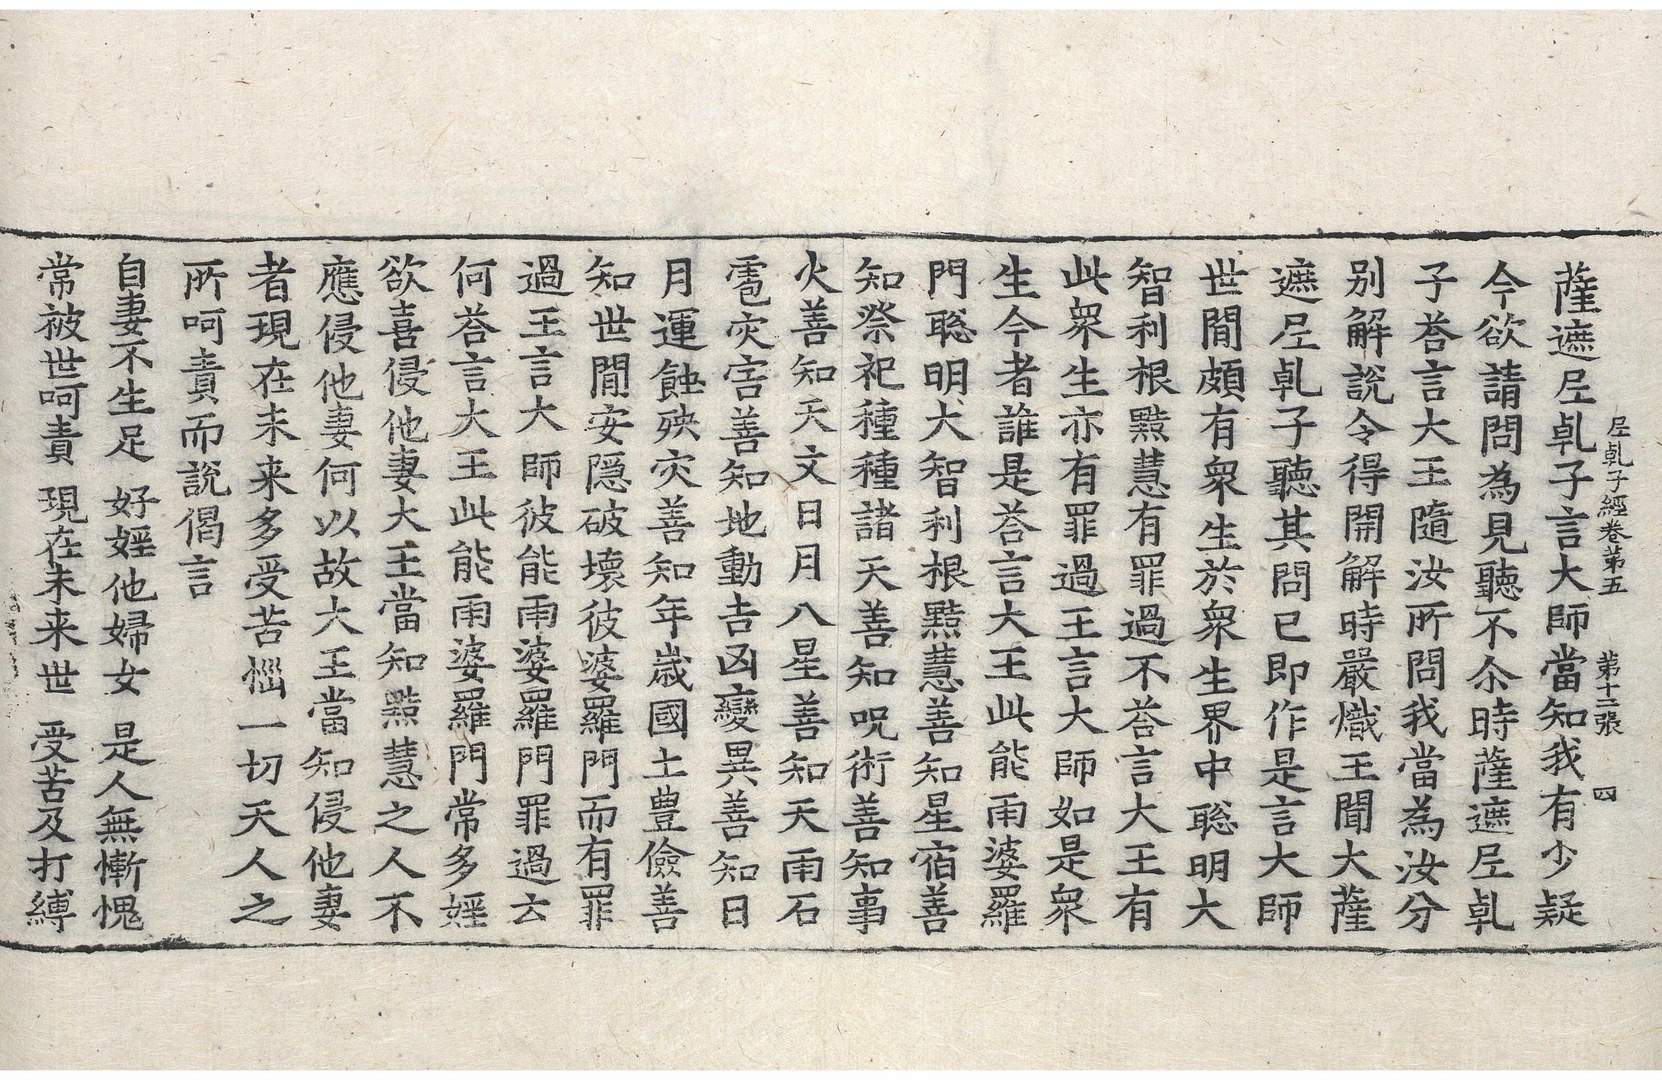 薩遮𡰱乹子言大師當知我有少疑
尼乹子經卷第五　第十二張　四
今欲請問為見聽不尒時薩遮𡰱乹
子荅言大王隨汝所問我當為汝分
别解說令得開解時嚴熾王聞大薩
遮𡰱乹子聽其問已即作是言大師
世閒頗有衆生於衆生界中聡明大
智利根黠慧有罪過不荅言大王有
此衆生亦有罪過王言大師如是衆
生今者誰是荅言大王此能雨婆羅
門聡明大智利根黠慧善知星宿善
知祭祀種種諸天善知呪術善知事
火善知天文日月八星善知天雨石
雹灾害善知地動吉凶變異善知日
月運蝕殃灾善知年歲國土豊儉善
知世閒安隱破壞彼婆羅門而有罪
過王言大師彼能雨婆羅門罪過云
何荅言大王此能雨婆羅門常多婬
欲喜侵他妻大王當知黠慧之人不
應侵他妻何以故大王當知侵他妻
者現在未来多受苦惱一切天人之
所呵責而說偈言
自妻不生足　好婬他婦女　是人無慚愧
常被世呵責　現在未来世　受苦及打縛